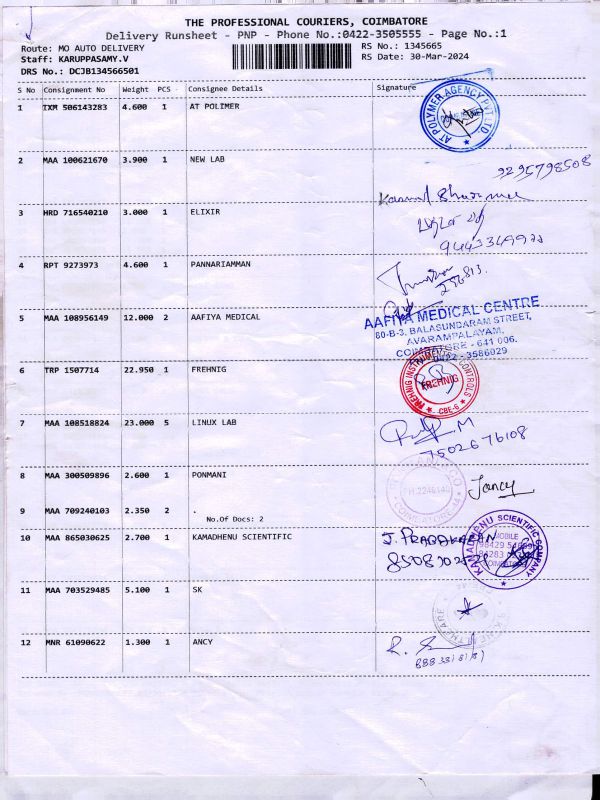 THE PROFESSIONAL COURIERS, COIMBATORE
Delivery Runsheet - PNP - Phone No.:0422-3505555 - Page No.:1
Route: MO AUTO DELIVERY
RS No.: 1345665
Staff: KARUPPASAMY.V
RS Date: 30-Mar-2024
DRS No.: DCJB134566501
S No Consignment No Weight PCS Consignee Details Signature
1 IXM 506143283 4.600 1 AT POLIMER
AT POLYMER AGENCY PVT LTD
2 MAA 100621670 3.900 1 NEW LAB
9295798508
3 HRD 716540210 3.000 1 ELIXIR
4 RPT 9273973 4.600 1 PANNARIAMMAN
5 MAA 108956149 12.000 2 AAFIYA MEDICAL
AAFIYA MEDICAL CENTRE
80-B-3, BALASUNDARAM STREET,
AVARAMPALAYAM,
COIMBATORE - 641 006.
0422 - 3586029
6 TRP 1507714 22.950 1 FREHNIG
FREHNIG INSTRUMENTS CONTROLS
FREHNIG
CBE-6
7 MAA 108518824 23.000 5 LINUX LAB
7502676108
8 MAA 300509896 2.600 1 PONMANI
Jancy
9 MAA 709240103 2.350 2 .
No.Of Docs: 2
10 MAA 865030625 2.700 1 KAMADHENU SCIENTIFIC
J. PRABAKARAN
KAMADHENU SCIENTIFIC COMPANY
MOBILE
11 MAA 703529485 5.100 1 SK
12 MNR 61090622 1.300 1 ANCY